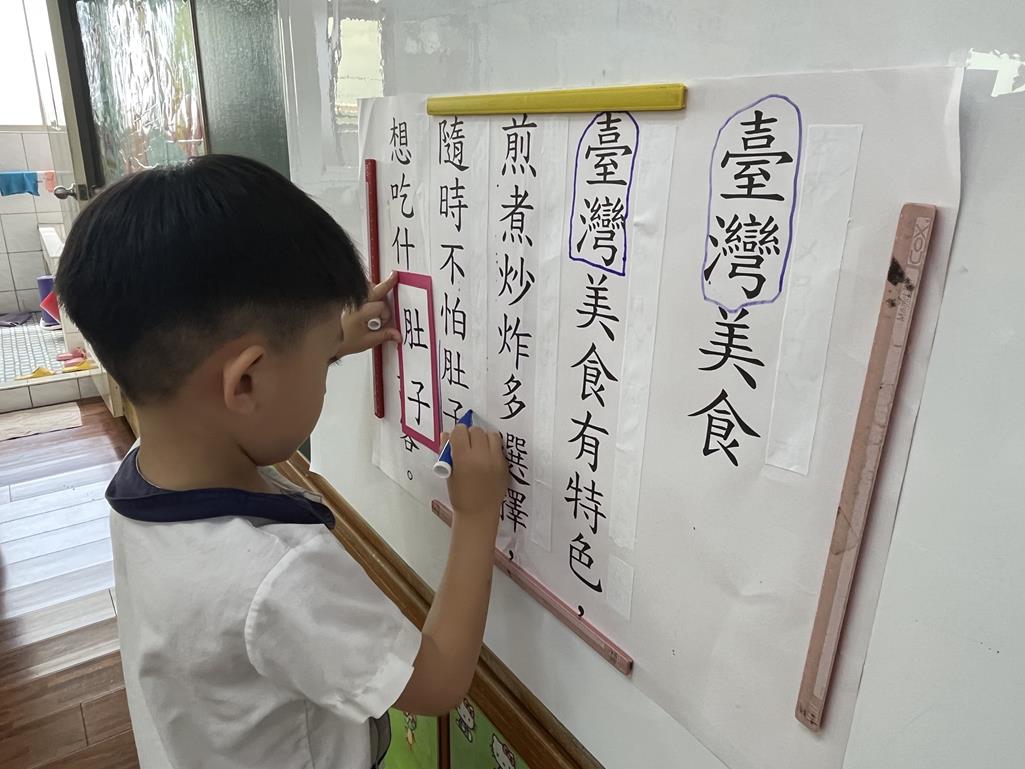 臺灣美食
臺灣美食有特色，
煎煮炒炸多選擇，
隨時不怕肚子
想吃什
。
肚子